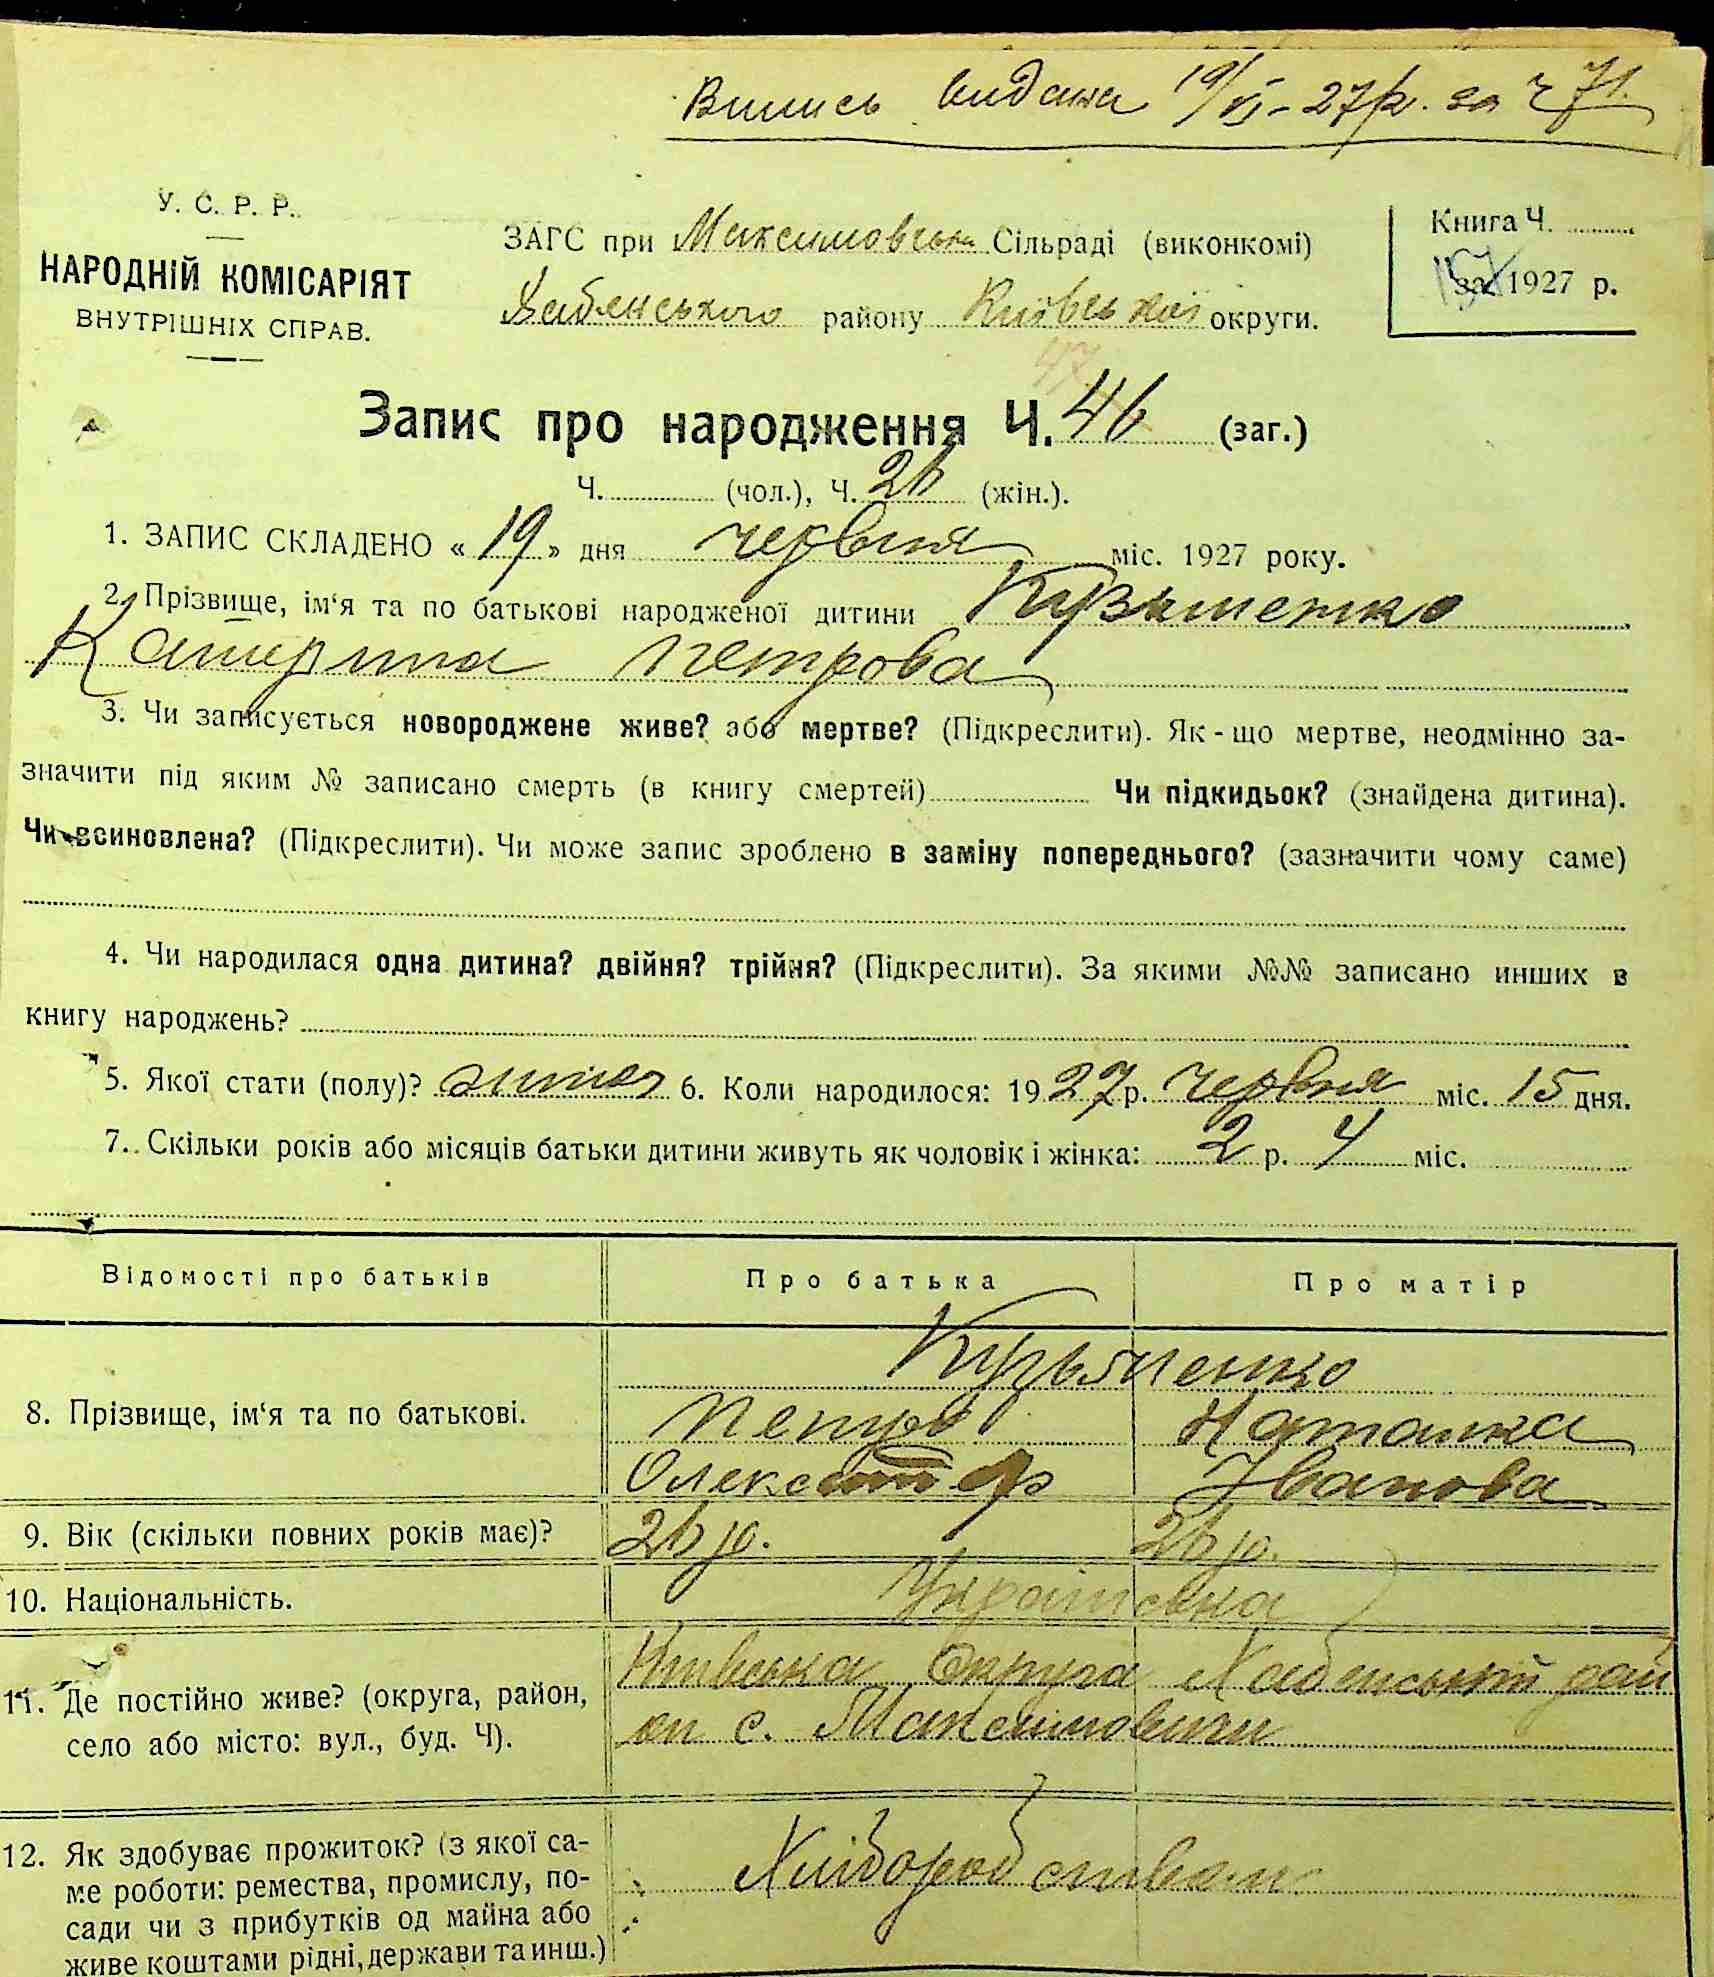 Випись видана 19/VI-27р. за ч 71.
У. С. Р. Р.
НАРОДНІЙ КОМІСАРІЯТ
ВНУТРІШНІХ СПРАВ.
ЗАГС при Максимовськи Сільраді (виконкомі)
Хабенського району Київської округи.
Книга Ч.
за 1927 р.
47
Запис про народження Ч. 46 (заг.)
Ч. (чол.), Ч. 26 (жін.).
1. ЗАПИС СКЛАДЕНО « 19 » дня червня міс. 1927 року.
2. Прізвище, ім‘я та по батькові народженої дитини
Катерина Петрова
3. Чи записується новороджене живе? або мертве? (Підкреслити). Як-що мертве, неодмінно за-
значити під яким № записано смерть (в книгу смертей) Чи підкидьок? (знайдена дитина).
Чи всиновлена? (Підкреслити). Чи може запис зроблено в заміну попереднього? (зазначити чому саме)
4. Чи народилася одна дитина? двійня? трійня? (Підкреслити). За якими №№ записано инших в
книгу народжень?
5. Якої стати (полу)? 6. Коли народилося: 1927 р. червня міс. 15 дня.
7. Скільки років або місяців батьки дитини живуть як чоловік і жінка: 2 р. 4 міс.
Відомості про батьків Про батька Про матір
8. Прізвище, ім‘я та по батькові.
Курьяненко
Петро Наталка
Олександр Іванова
9. Вік (скільки повних років має)? 26 р. 26 р.
10. Національність. Українська
11. Де постійно живе? (округа, район,
село або місто: вул., буд. Ч).
Київська Округа Хабенський рай
он с. Максимовичи
12. Як здобуває прожиток? (з якої са-
ме роботи: ремества, промислу, по-
сади чи з прибутків од майна або
живе коштами рідні, держави та инш.)
Хліборобством